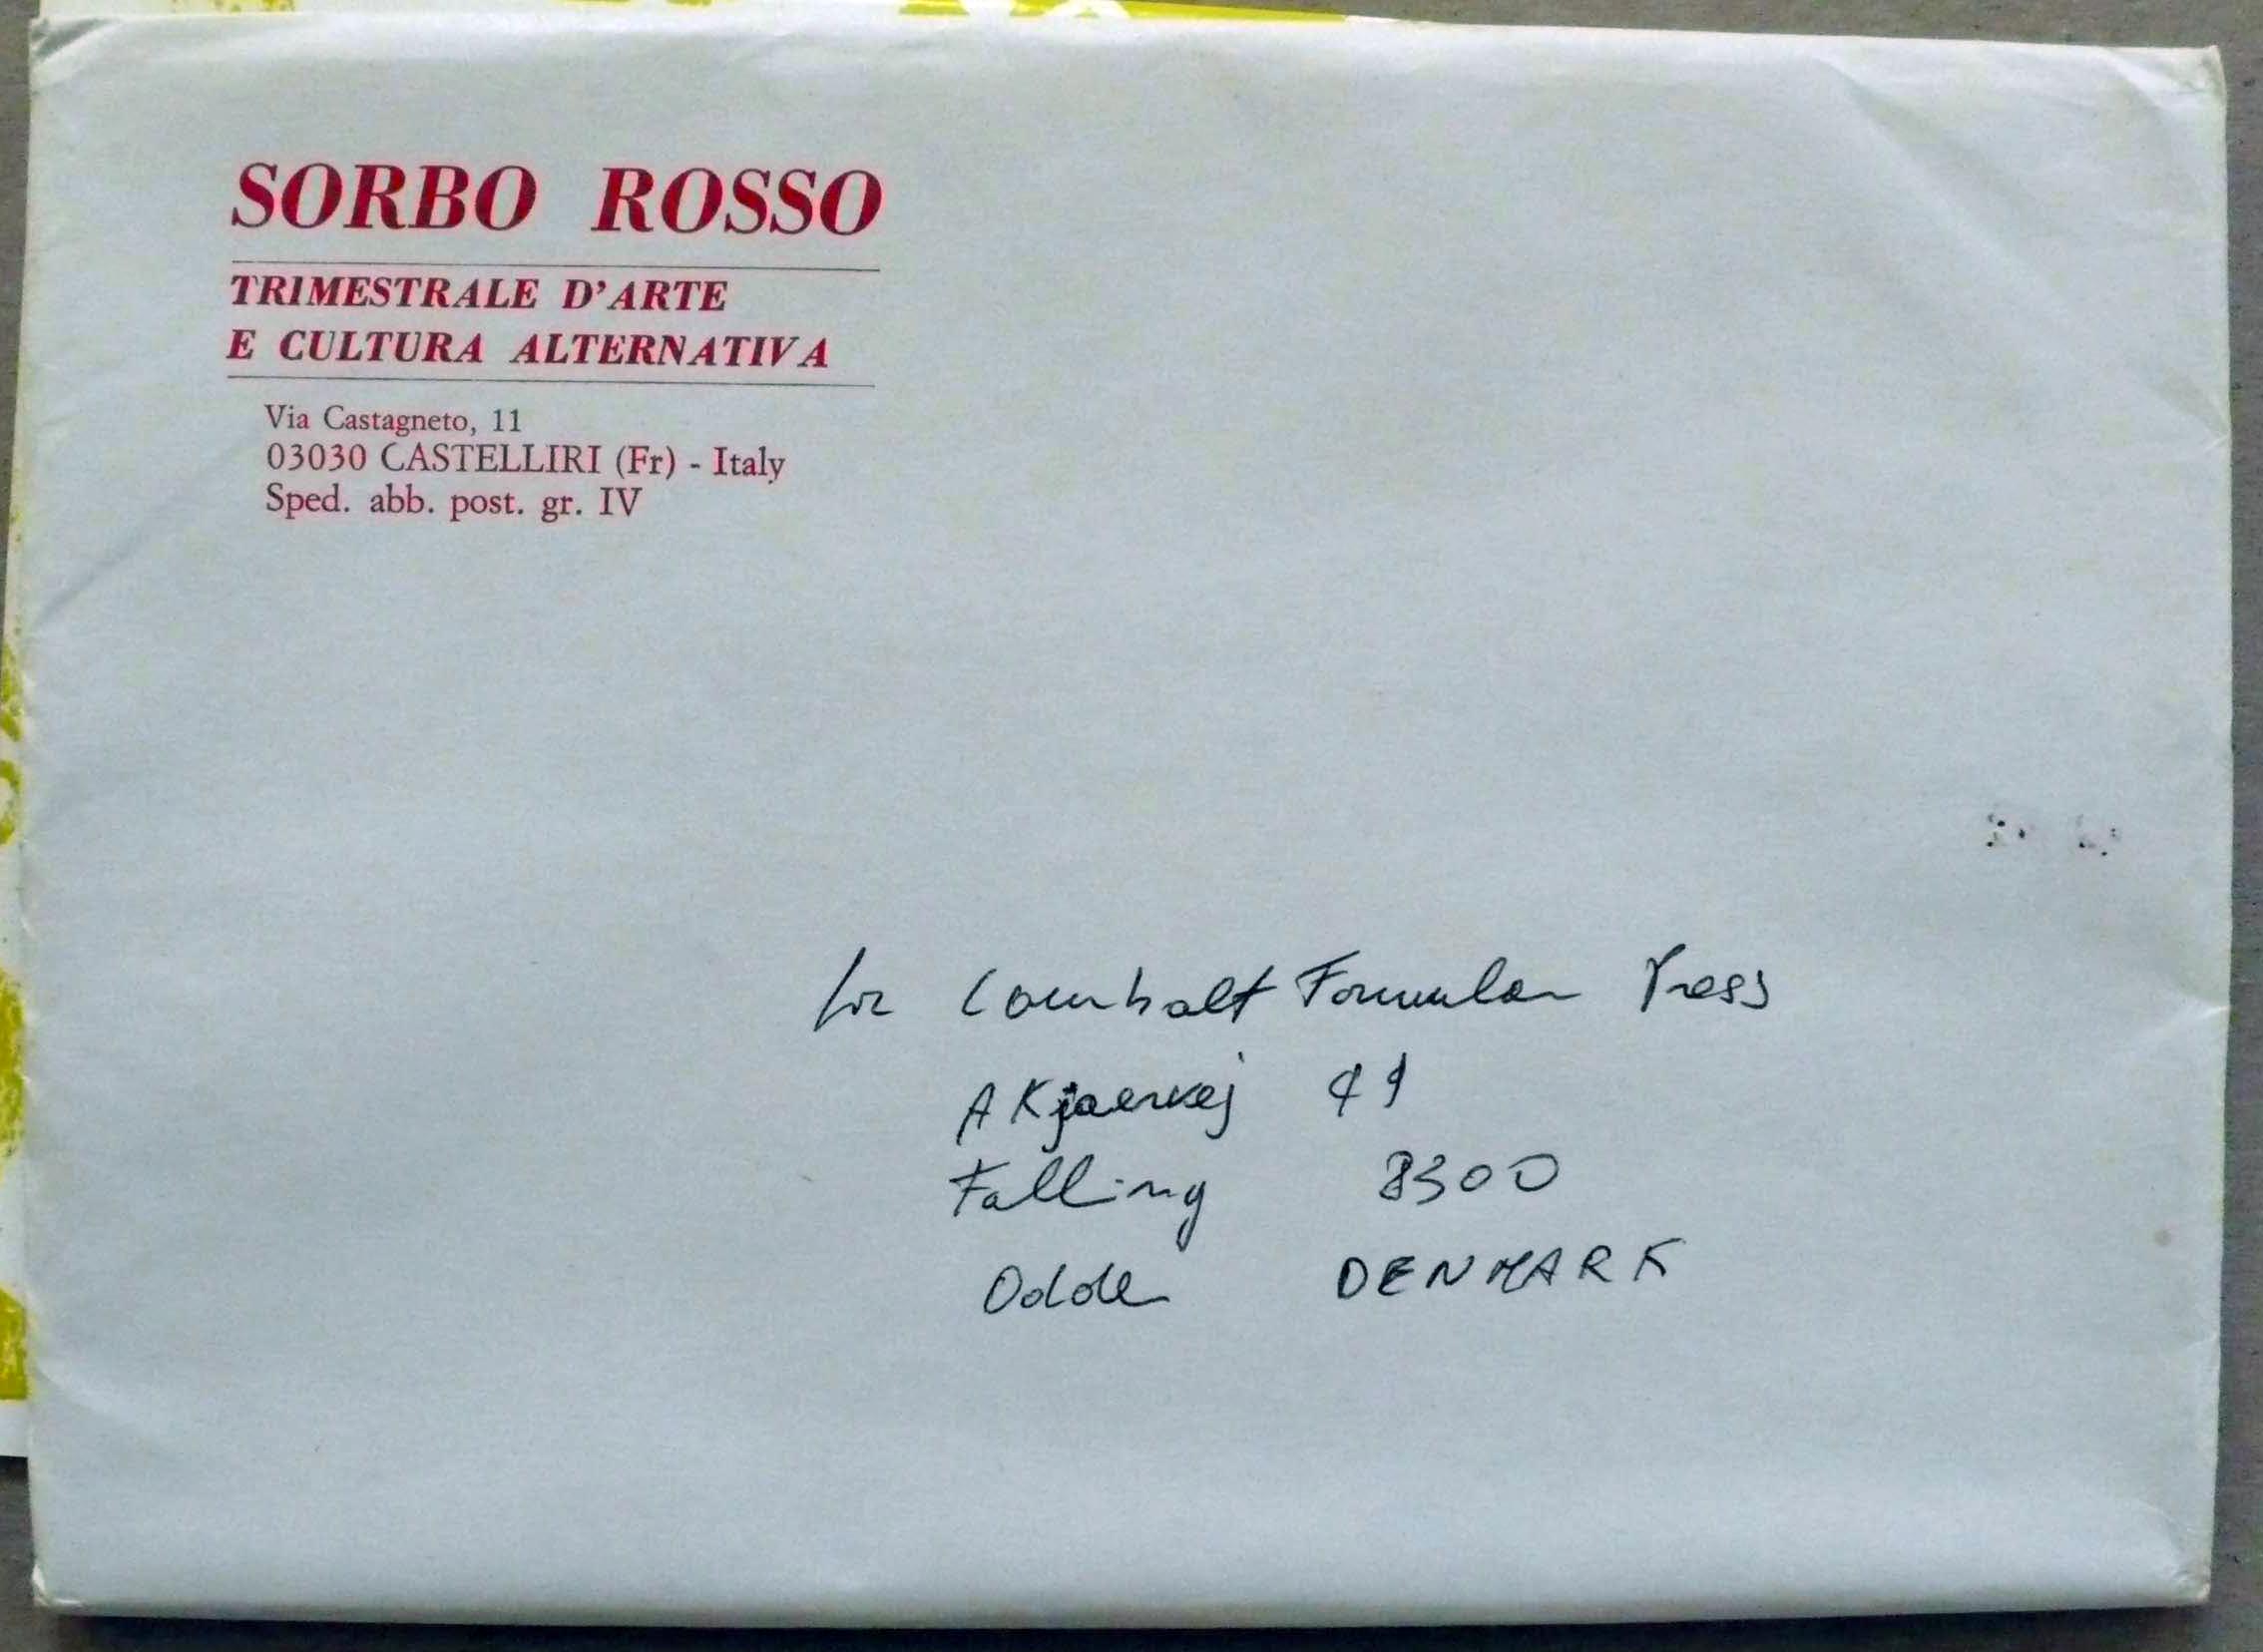 SORBO ROSSO
TRIMESTRALE D'ARTE
E CULTURA ALTERNATIVA
Via Castagneto, 11
03030 CASTELLIRI (Fr) - Italy
Sped. abb. post. gr. IV
for Formular Press
AKjaervej
Falling 8300
Odder DENMARK